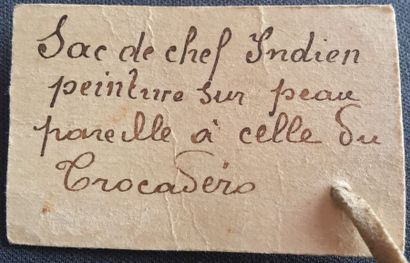 Sac de chef Indien
peinture sur peau
pareille à celle du
Trocadéro